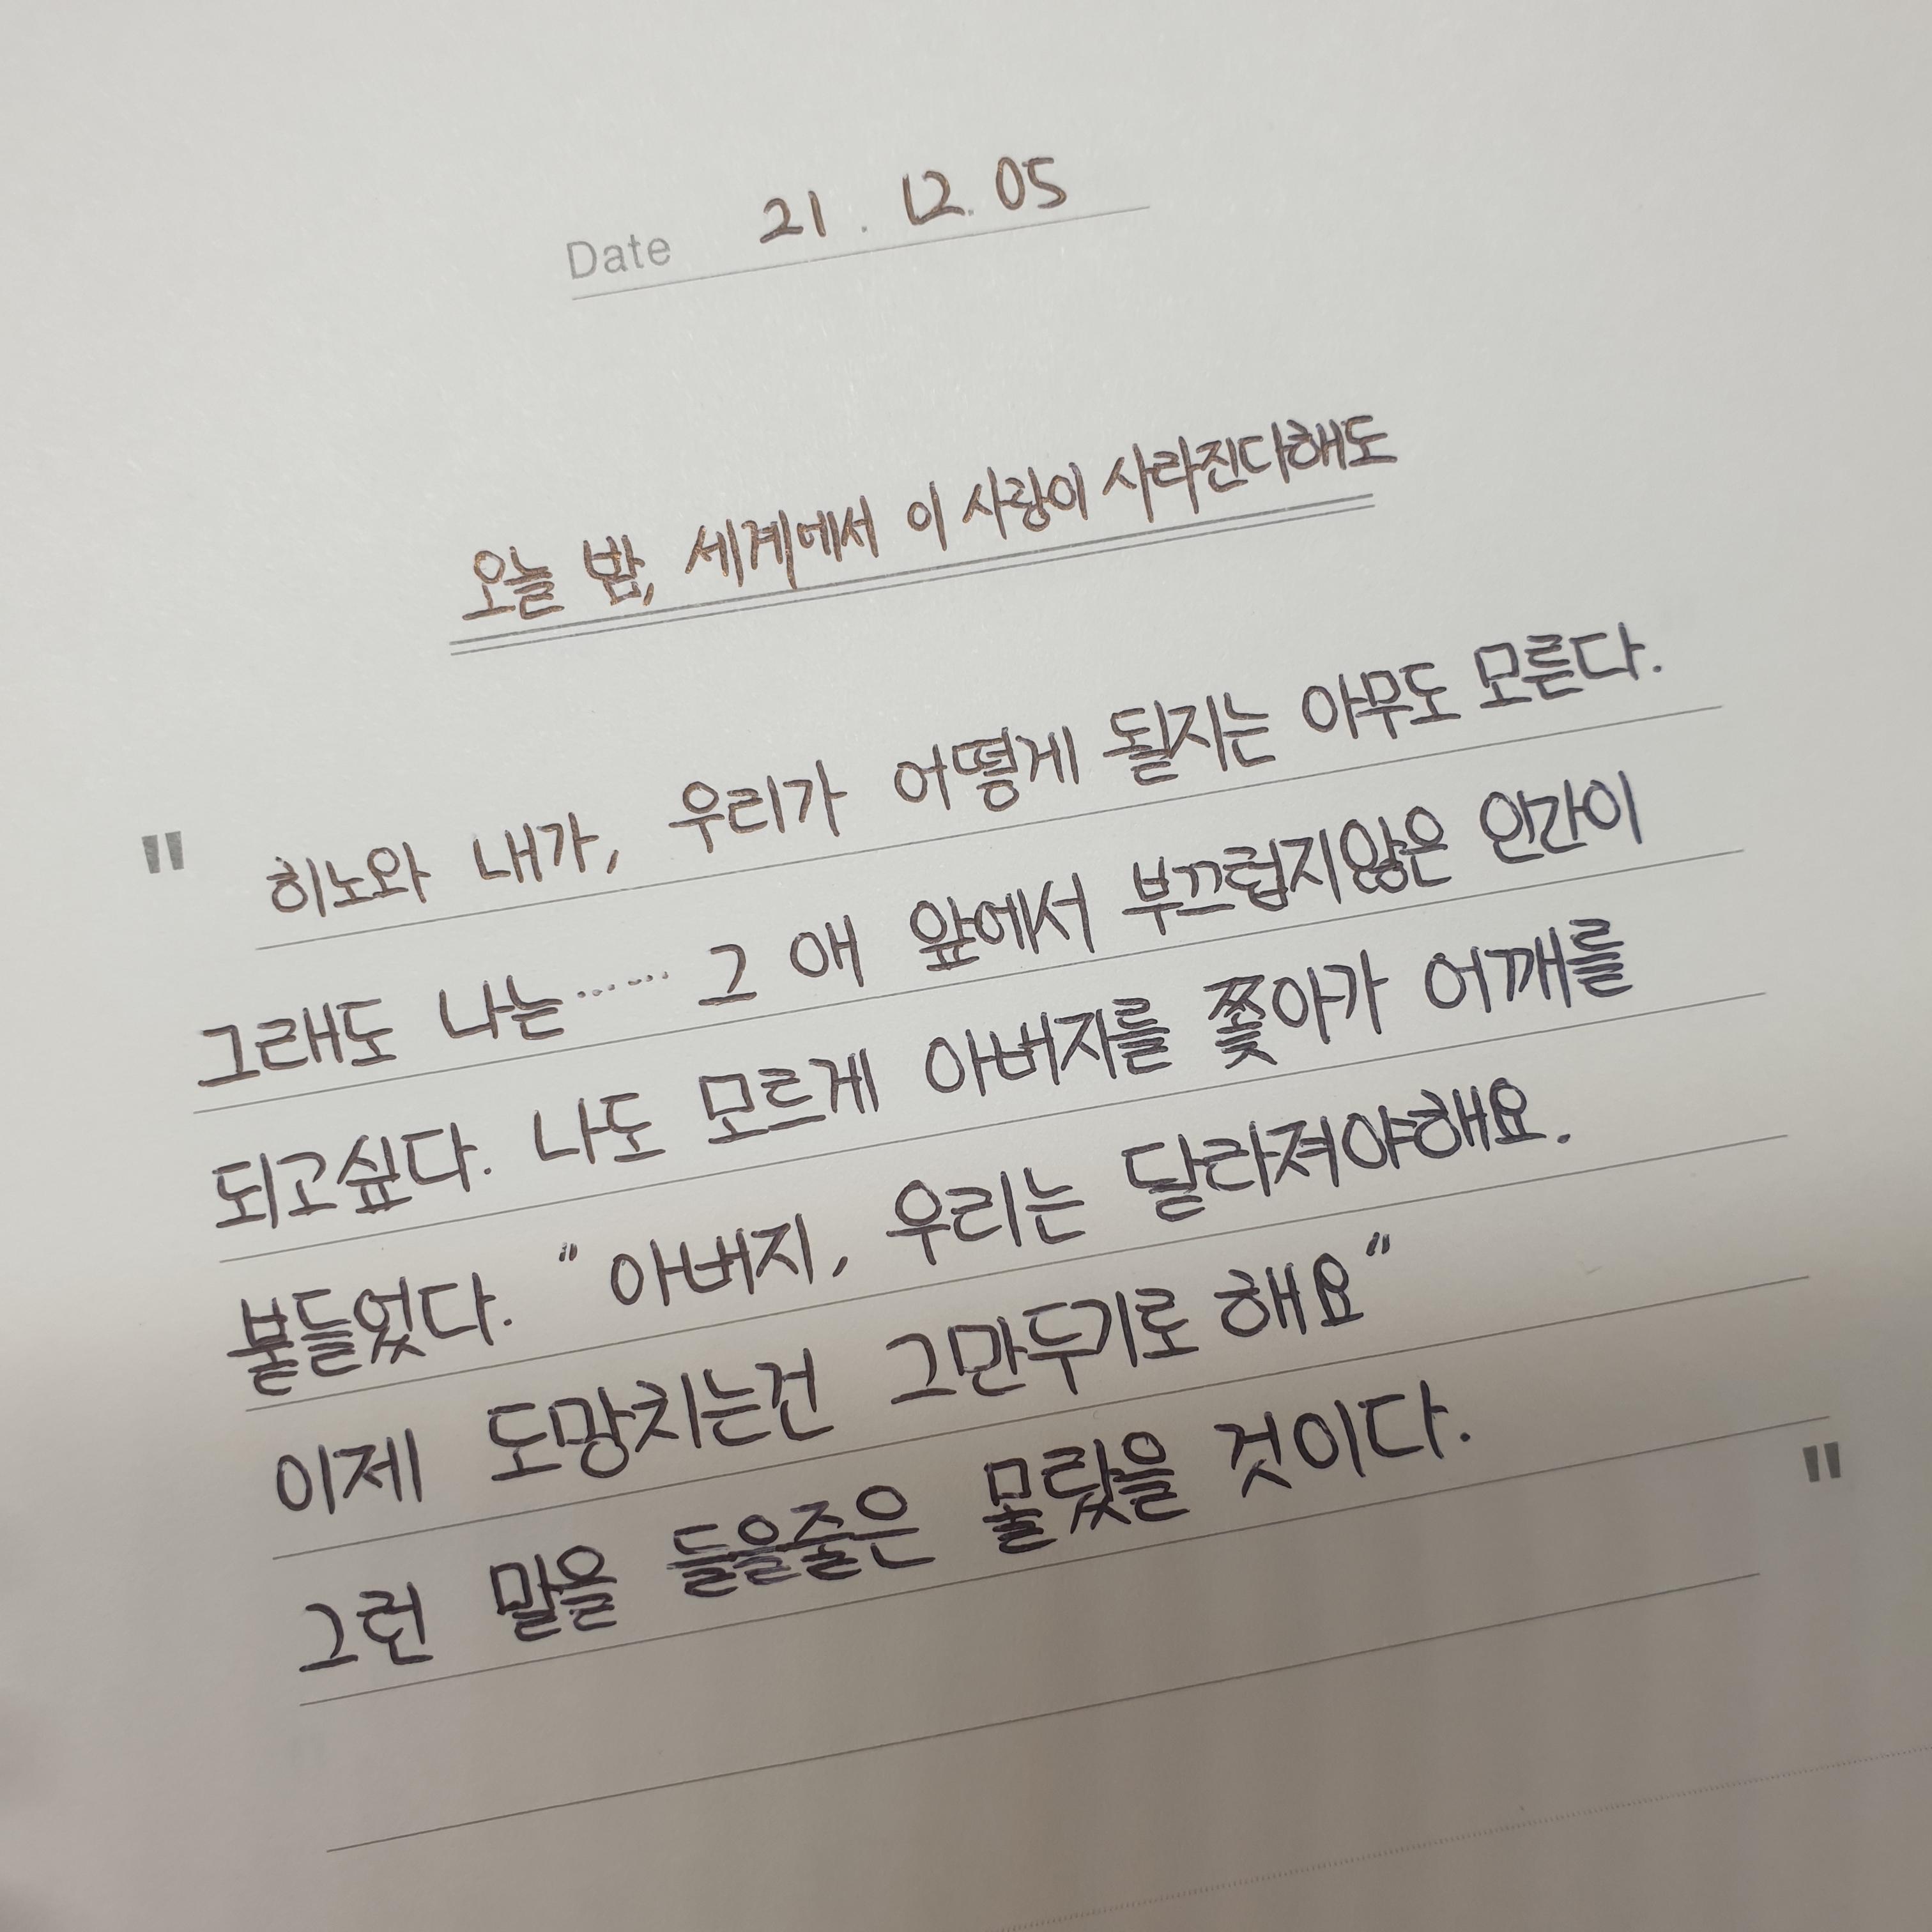 Date 21. 12. 05
오늘 밤, 세계에서 이 사랑이 사라진다해도
" 히노와 내가, 우리가 어떻게 될지는 아무도 모른다.
그래도 나는…… 그 애 앞에서 부끄럽지않은 인간이
되고싶다. 나도 모르게 아버지를 쫓아가 어깨를
붙들었다. "아버지, 우리는 달라져야해요.
이제 도망치는건 그만두기로 해요"
그런 말을 들을줄은 몰랐을 것이다. "